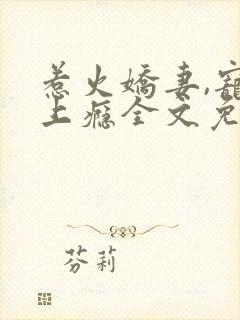 惹火嬌妻,寵
上癮全文免
芬莉